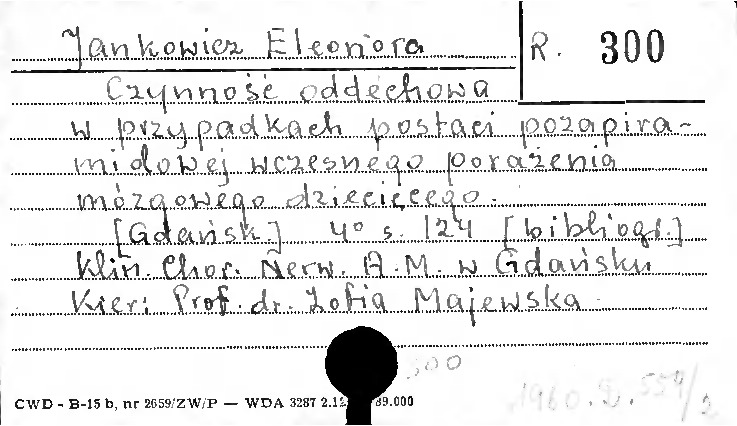 Jankowicz Eleonora R. 300
Czynność oddechowa
w przypadkach postaci pozapira-
midowej wczesnego porażenia
mózgowego dziecięcego.
[Gdańsk] 4° s. 124 [bibliogr.]
Klin. Chor. Nerw. A.M. w Gdańsku
Kier: Prof. dr. Zofia Majewska
300
CWD - B-15 b, nr 2659/ZW/P — WDA 3287 2.12 89.000
1960.D.